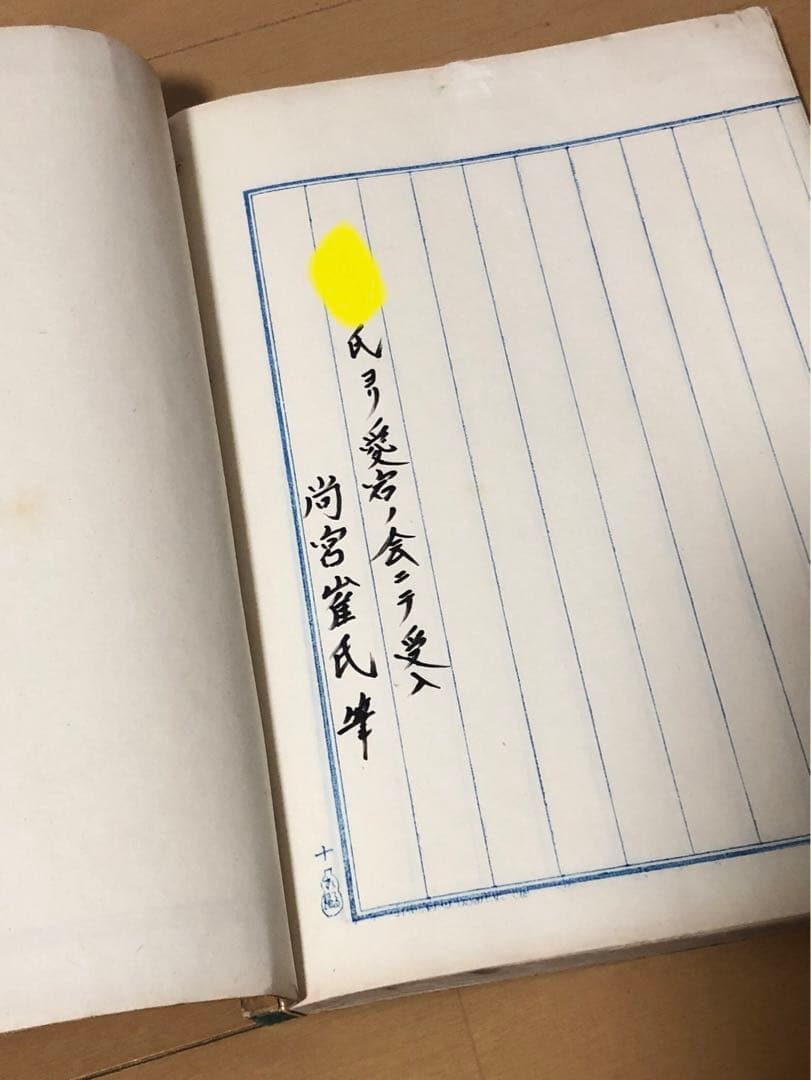 氏ヨリ愛宕ノ会ニテ受入
尚宮崔氏筆
十